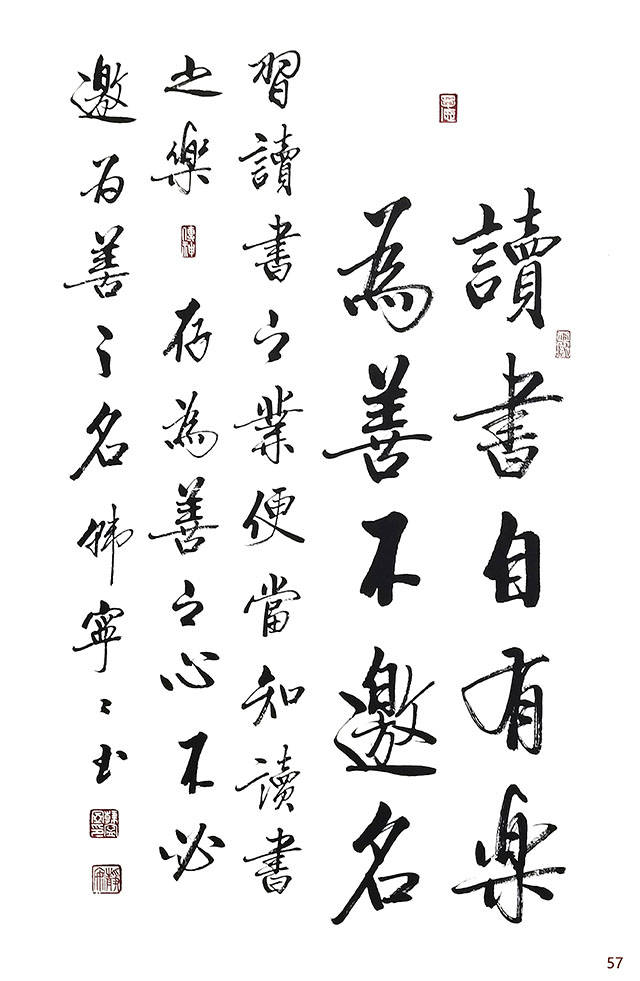 讀書自有樂
為善不邀名
習讀書之業便當知讀書
之樂 存為善之心不必
邀为善之名 韩寧寧书
57